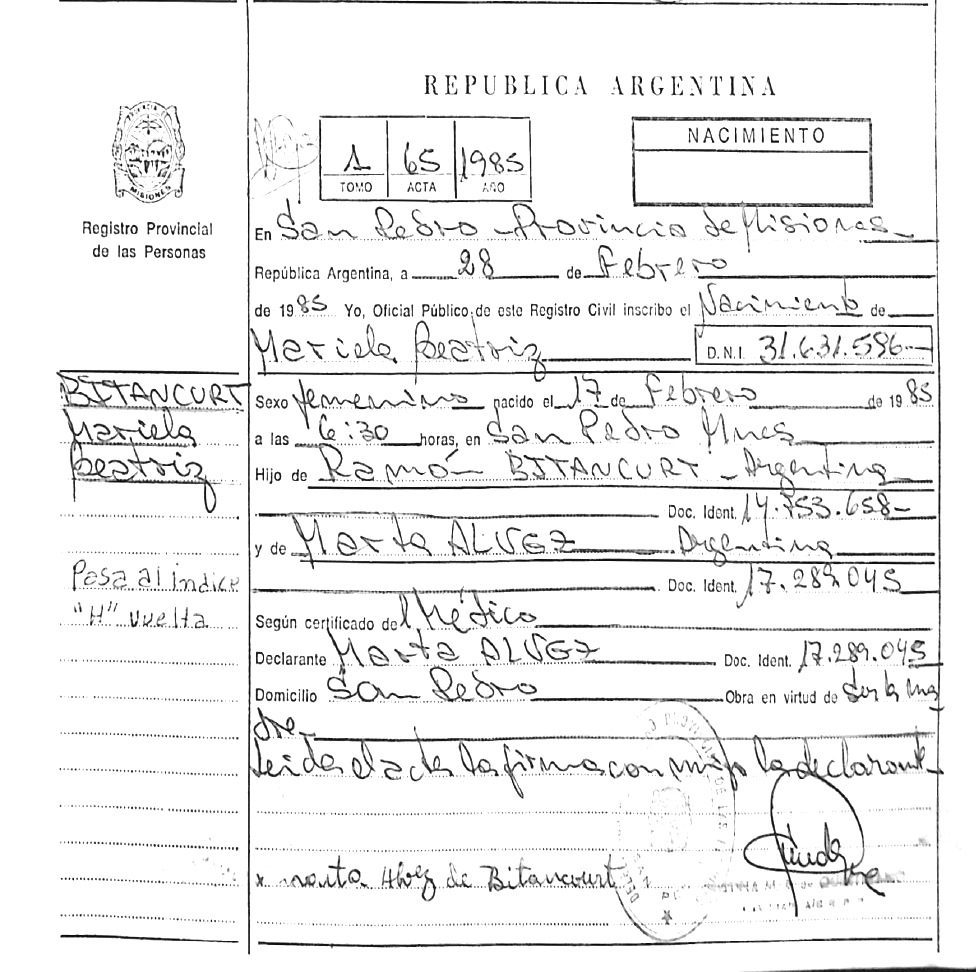 REPUBLICA ARGENTINA
PROVINCIA DE MISIONES
Registro Provincial
de las Personas
1 65 1985
TOMO ACTA AÑO
NACIMIENTO
En San Pedro - Provincia de Misiones -
República Argentina, a 28 de Febrero
de 1985 Yo, Oficial Público de este Registro Civil inscribo el Nacimiento de
Mariela Beatriz D.N.I. 31.631.596-
BITANCURT
Mariela
Beatriz
Sexo femenino nacido el 17 de Febrero de 1985
a las 6:30 horas, en San Pedro Mnes
Hijo de Ramón BITANCURT - Argentina
Doc. Ident. 14.753.658-
y de Marta ALVEZ Argentina
Doc. Ident. 17.289.045
Pasa al indice
"H" vuelta
Según certificado del Médico
Declarante Marta ALVEZ Doc. Ident. 17.289.045
Domicilio San Pedro Obra en virtud de ser la ma
dre-
Leida el acta la firma conmigo la declarante-
x marta Alvez de Bitancourt